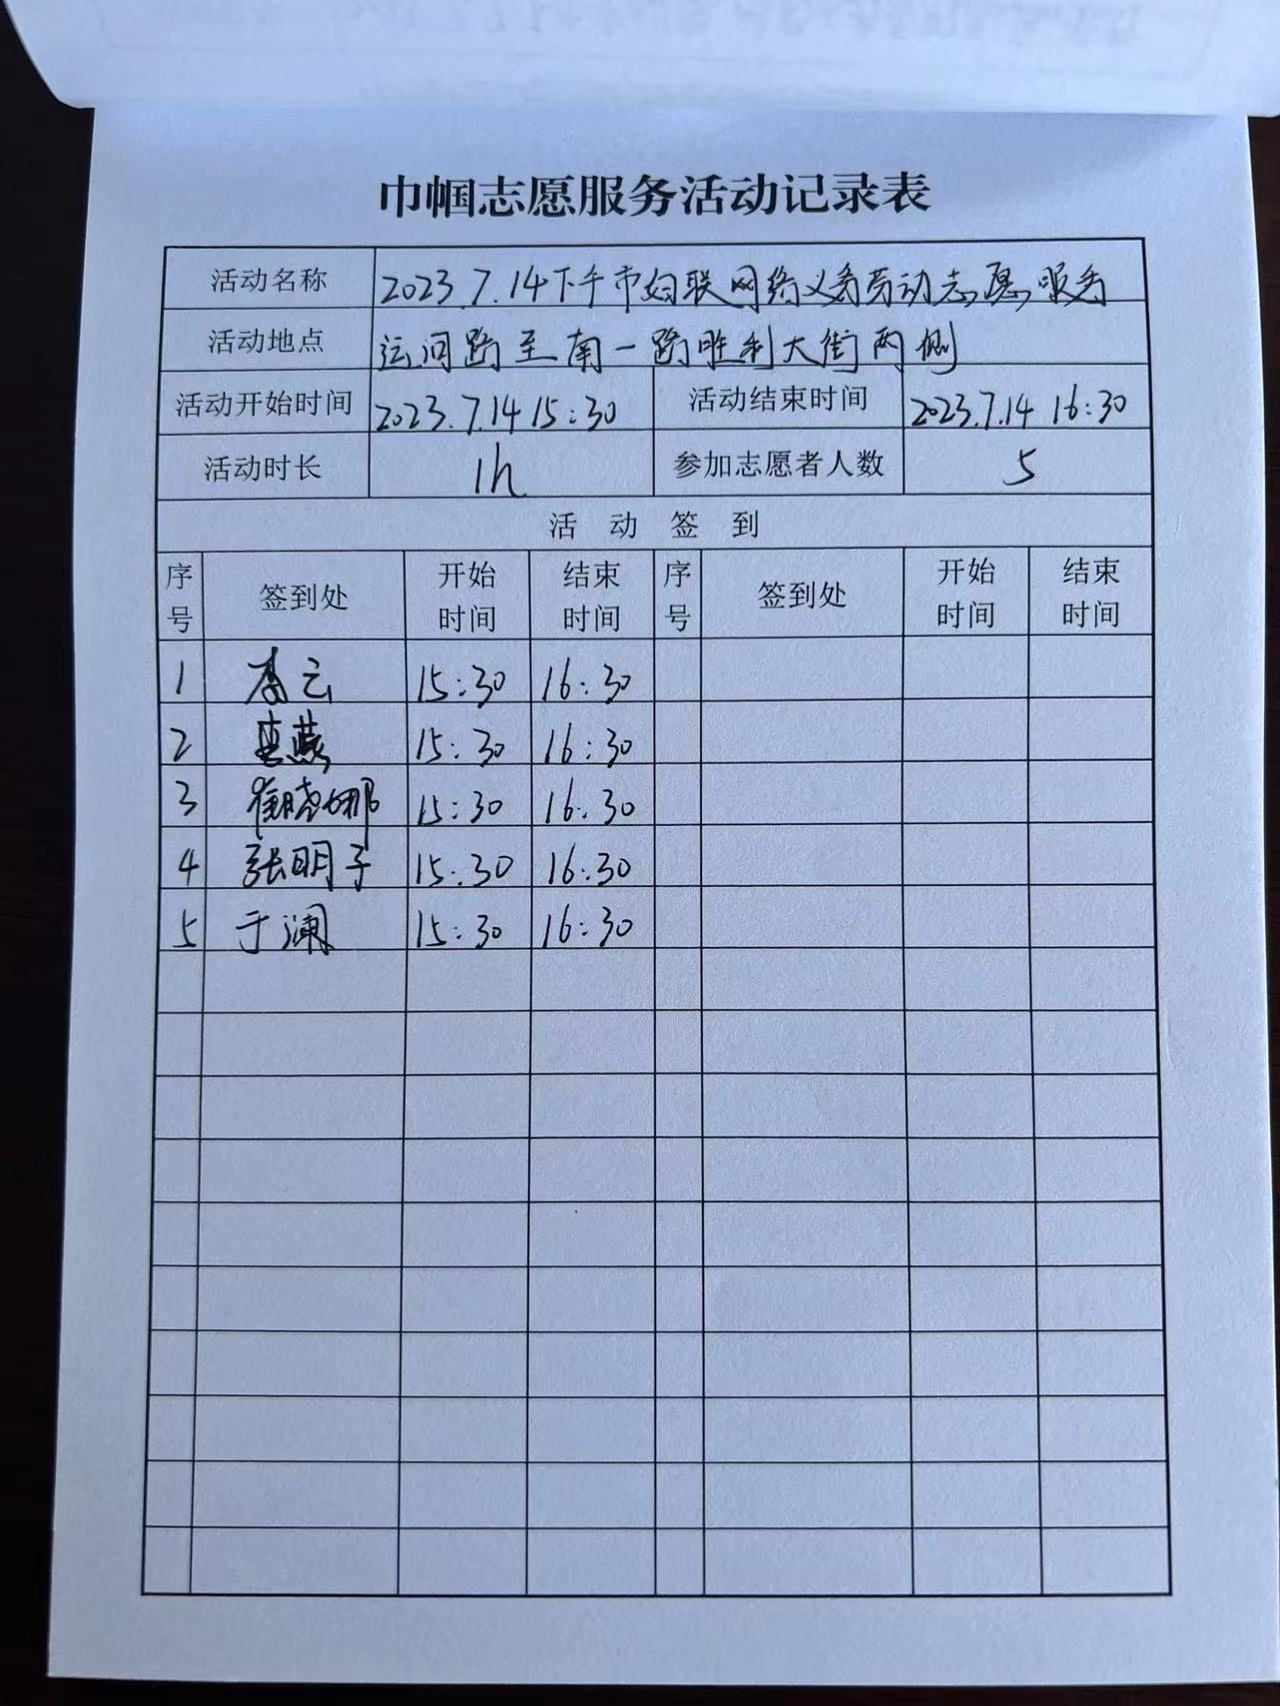 巾帼志愿服务活动记录表
活动名称 2023.7.14下午市妇联网络义务劳动志愿服务
活动地点 运河路至南一路胜利大街两侧
活动开始时间 2023.7.14 15:30 活动结束时间 2023.7.14 16:30
活动时长 1h 参加志愿者人数 5
活动签到
序号 签到处 开始时间 结束时间 序号 签到处 开始时间 结束时间
1 李云 15:30 16:30
2 燕 15:30 16:30
3 崔晓娜 15:30 16:30
4 张明子 15:30 16:30
5 于澜 15:30 16:30